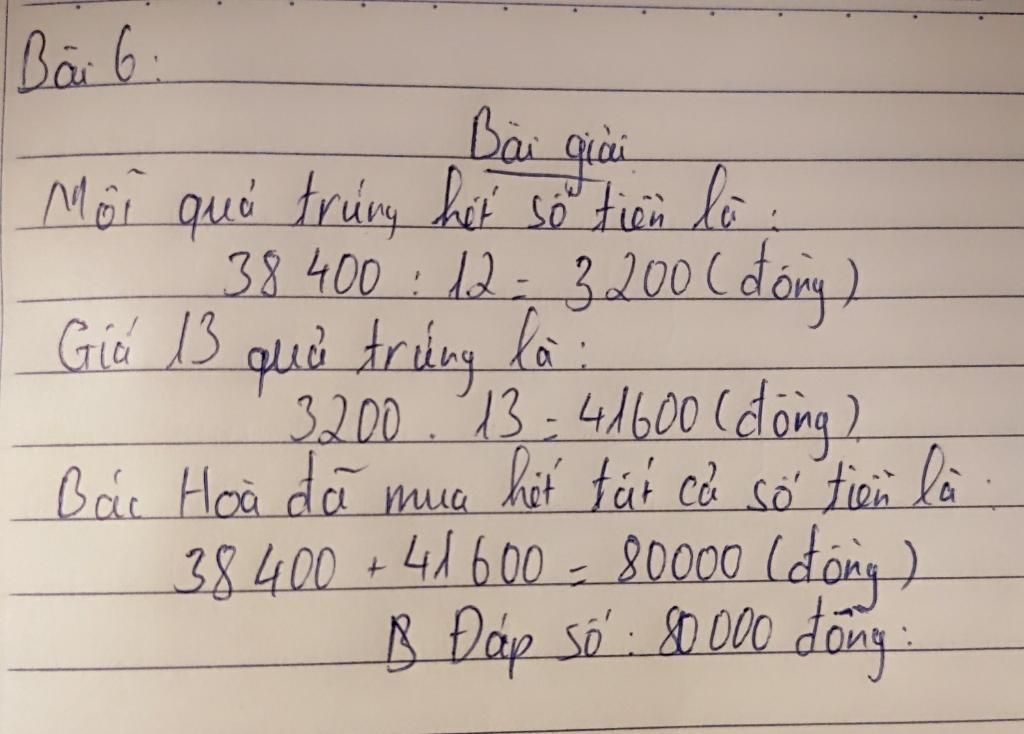 Bài 6:
Bài giải
Mỗi quả trứng hết số tiền là:
38 400 : 12 = 3 200 (đồng)
Giá 13 quả trứng là:
3200 . 13 = 41600 (đồng)
Bác Hoà đã mua hết tất cả số tiền là:
38 400 + 41 600 = 80000 (đồng)
B Đáp số: 80 000 đồng: